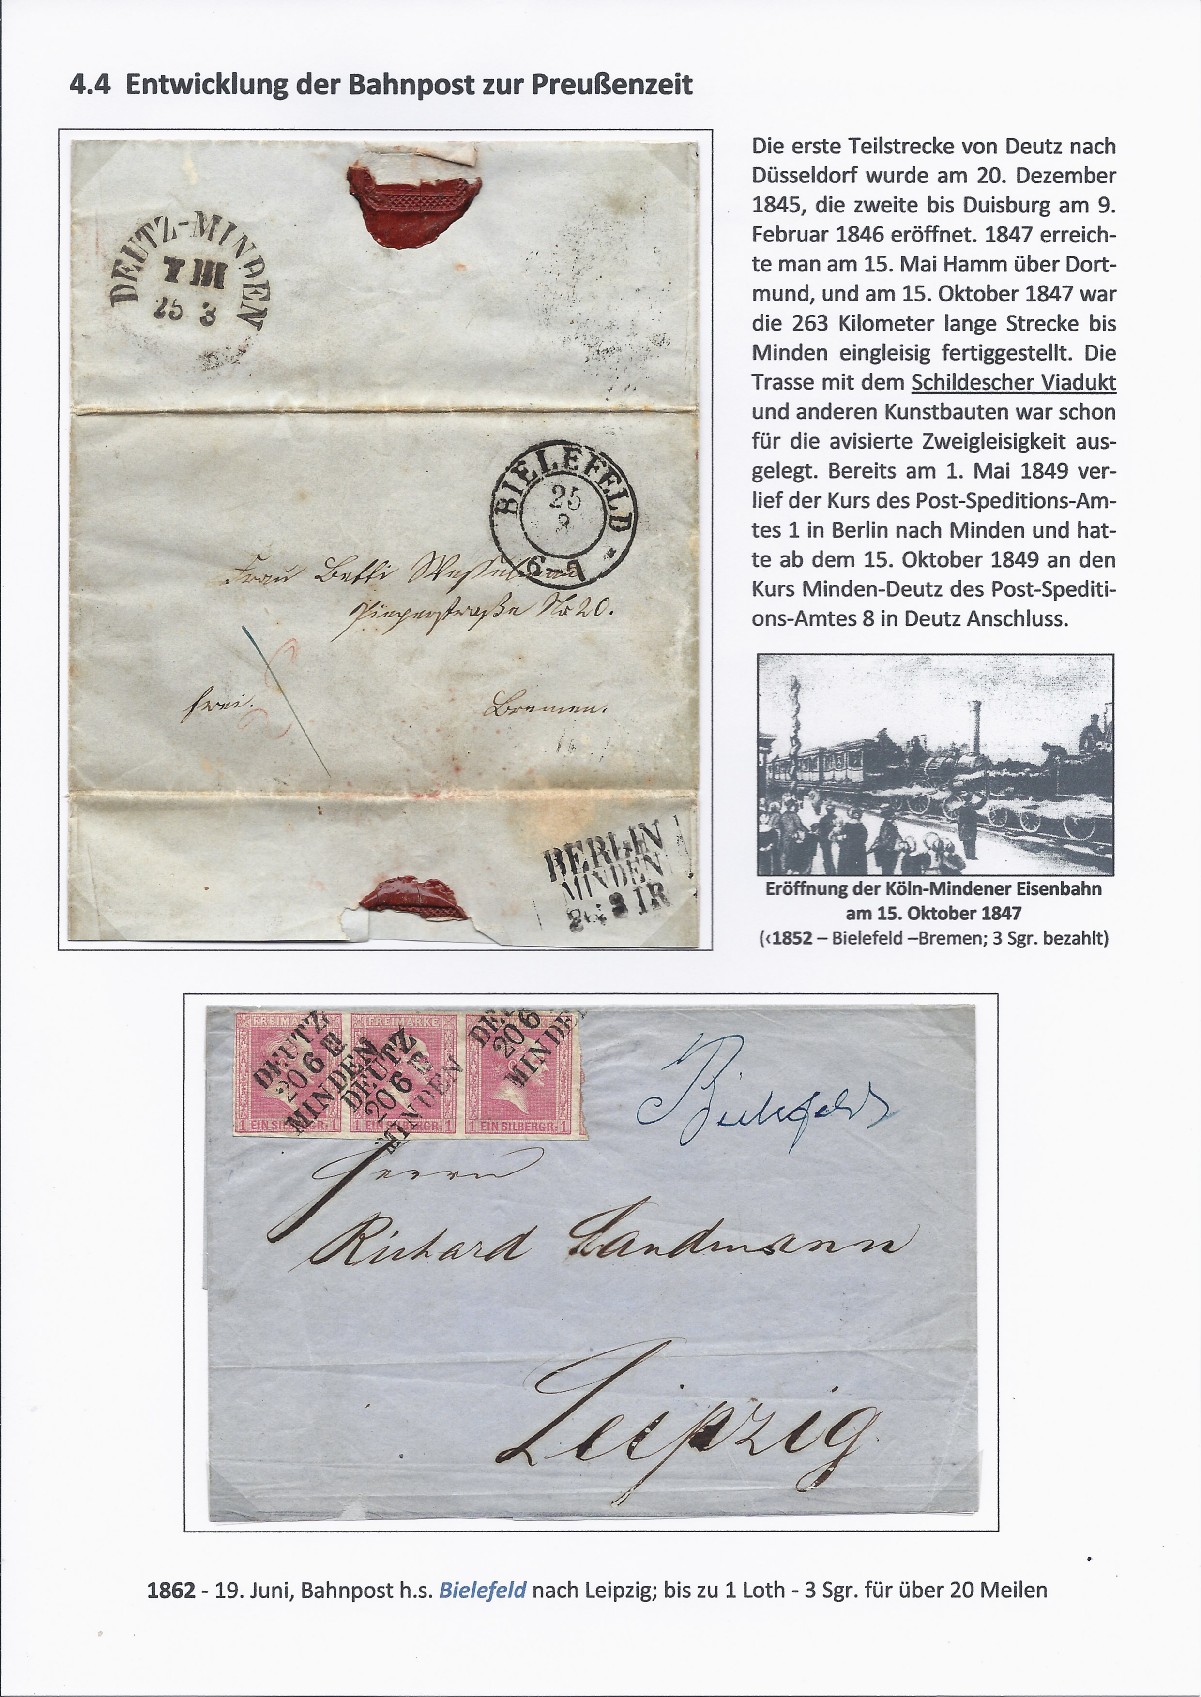 4.4 Entwicklung der Bahnpost zur Preußenzeit
DEUTZ-MINDEN
T III
25 3
BIELEFELD
25
3
6-9
Frau Betti
No 20.
frei.
Bremen.
BERLIN
MINDEN
Die erste Teilstrecke von Deutz nach
Düsseldorf wurde am 20. Dezember
1845, die zweite bis Duisburg am 9.
Februar 1846 eröffnet. 1847 erreich-
te man am 15. Mai Hamm über Dort-
mund, und am 15. Oktober 1847 war
die 263 Kilometer lange Strecke bis
Minden eingleisig fertiggestellt. Die
Trasse mit dem Schildescher Viadukt
und anderen Kunstbauten war schon
für die avisierte Zweigleisigkeit aus-
gelegt. Bereits am 1. Mai 1849 ver-
lief der Kurs des Post-Speditions-Am-
tes 1 in Berlin nach Minden und hat-
te ab dem 15. Oktober 1849 an den
Kurs Minden-Deutz des Post-Spediti-
ons-Amtes 8 in Deutz Anschluss.
Eröffnung der Köln-Mindener Eisenbahn
am 15. Oktober 1847
(‹1852 – Bielefeld –Bremen; 3 Sgr. bezahlt)
FREIMARKE FREIMARKE
DEUTZ
20 6 III
MINDEN
DEUTZ
20 6 III
MINDEN
DEU
20 6
MINDE
1 EIN SILBERGR. 1 1 EIN SILBERGR. 1 1 EIN SILBERGR. 1
Bielefeld
Herrn
Richard Landmann
Leipzig
1862 - 19. Juni, Bahnpost h.s. Bielefeld nach Leipzig; bis zu 1 Loth - 3 Sgr. für über 20 Meilen